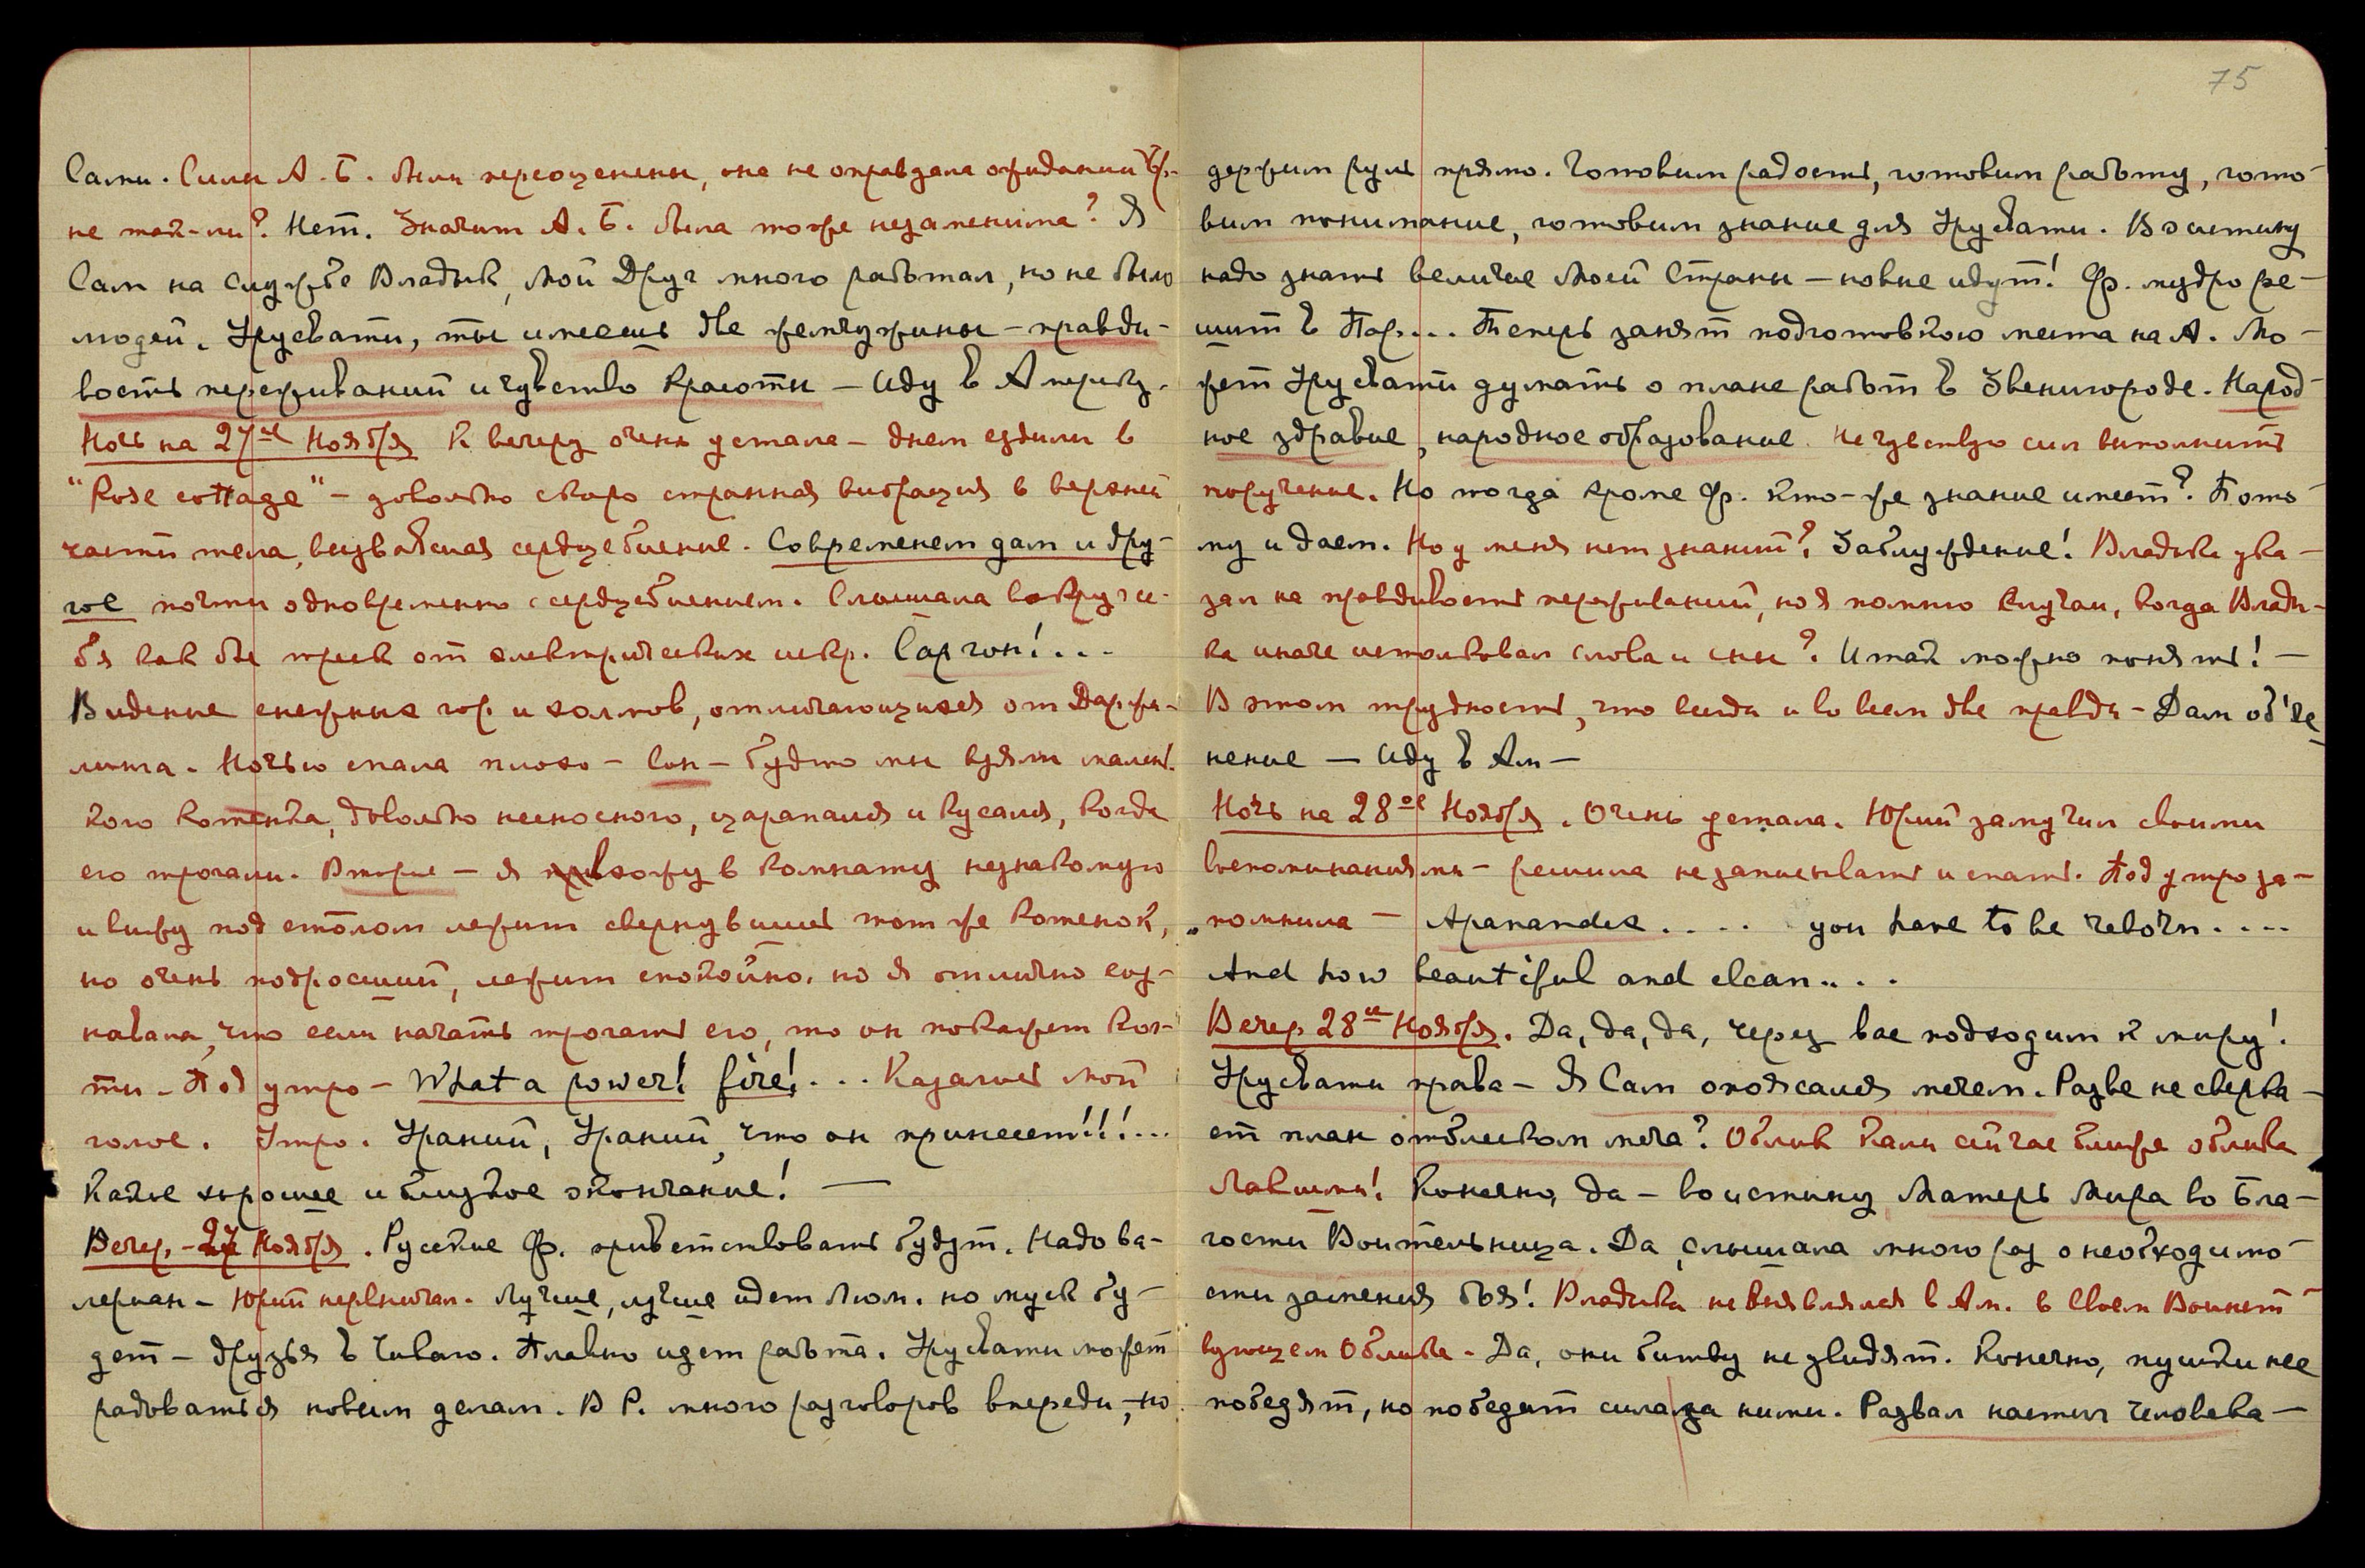 Сами. Силы А. Б. были переоценены, она не оправдала ожиданий Вл.
не так-ли? Нет. Значит А. Б. была тоже незаменима? Я
Сам на службе Владык, Мой Друг много работал, но не было
людей. Урусвати, ты имеешь две жемчужины – правди-
вость переживаний и чувство красоты – Иду в Америку.
Ночь на 27ое Ноября К вечеру очень устала – днем ездили в
"Rose cottage" – довольно скоро странная вибрация в верхней
части тела, вызвавшая сердцебиение. Современем дам и дру-
гое почти одновременно с сердцебиением. Слышала вокруг се-
бя как бы треск от электрических искр. Саргон!...
Видение снежных гор и холмов, отличающихся от Даржи-
линга. Ночью спала плохо – Сон – будто мы взяли малень-
кого котенка, довольно несносного, царапался и кусался, когда
его трогали. Второе – я вхожу в комнату незнакомую
и вижу под столом лежит свернувшись тот же котенок,
но очень подросший, лежит спокойно, но я отлично соз-
навала, что если начать трогать его, то он покажет ког-
ти – Под утро – What a power! fire!... Казалось мой
голос. Утро. Ураний, Ураний, что он принесет!!!...
Какое хорошее и близкое окончание! —
Вечер, – 27 Ноября. Русские Ф. приветствовать будут. Надо ва-
лериан – Юрий нервничал. Лучше, лучше идет Люм. но муск бу-
дет – друзья в Чикаго. Плавно идет работа. Урусвати может
радоваться новым делам. В Р. много разговоров впереди, – но
75
держим руль прямо. Готовим радость, готовим работу, гото-
вим понимание, готовим знание для Урусвати. Воистину
надо знать величие Моей Страны – новые идут! Ф. мудро ре-
шит в Пар... Теперь занят подготовкою места на А. Мо-
жет Урусвати думать о плане работ в Звенигороде. Народ-
ное здравие, народное образование. Не чувствую сил выполнить
поручение. Но тогда кроме Ф. кто-же знание имеет? Пото-
му и даем. Но у меня нет знаний? Заблуждение! Владыка ука-
зал на правдивость переживаний, но я помню случаи, когда Влады-
ка иначе истолковал слова и сны? И так можно понять! –
В этом трудность, что всегда и во всем две правды – Дам об'яс
нение – Иду в Ам –
Ночь на 28ое Ноября. Очень устала. Юрий замучил своими
воспоминаниями – решила не записывать и спать. Под утро за-
„помнила – Apanandes.... you have to be reborn....
And how beautiful and clean....
Вечер 28ое Ноября. Да, да, да, через вас подходим к миру!
Урусвати права – Я Сам опоясался мечем. Разве не сверка-
ет план отблеском меча? Облик Кали сейчас ближе облика
Лакшми! Конечно, да – воистину Матерь Мира во Бла-
гости Воительница. Да, слышала много раз о необходимо-
сти заменить бья! Владыка не выявлялся в Ам. в Своем Воинст
вующем Облике – Да, они битву не увидят. Конечно, пушки не
победят, но победит сила за ними. Развал настиг человека –